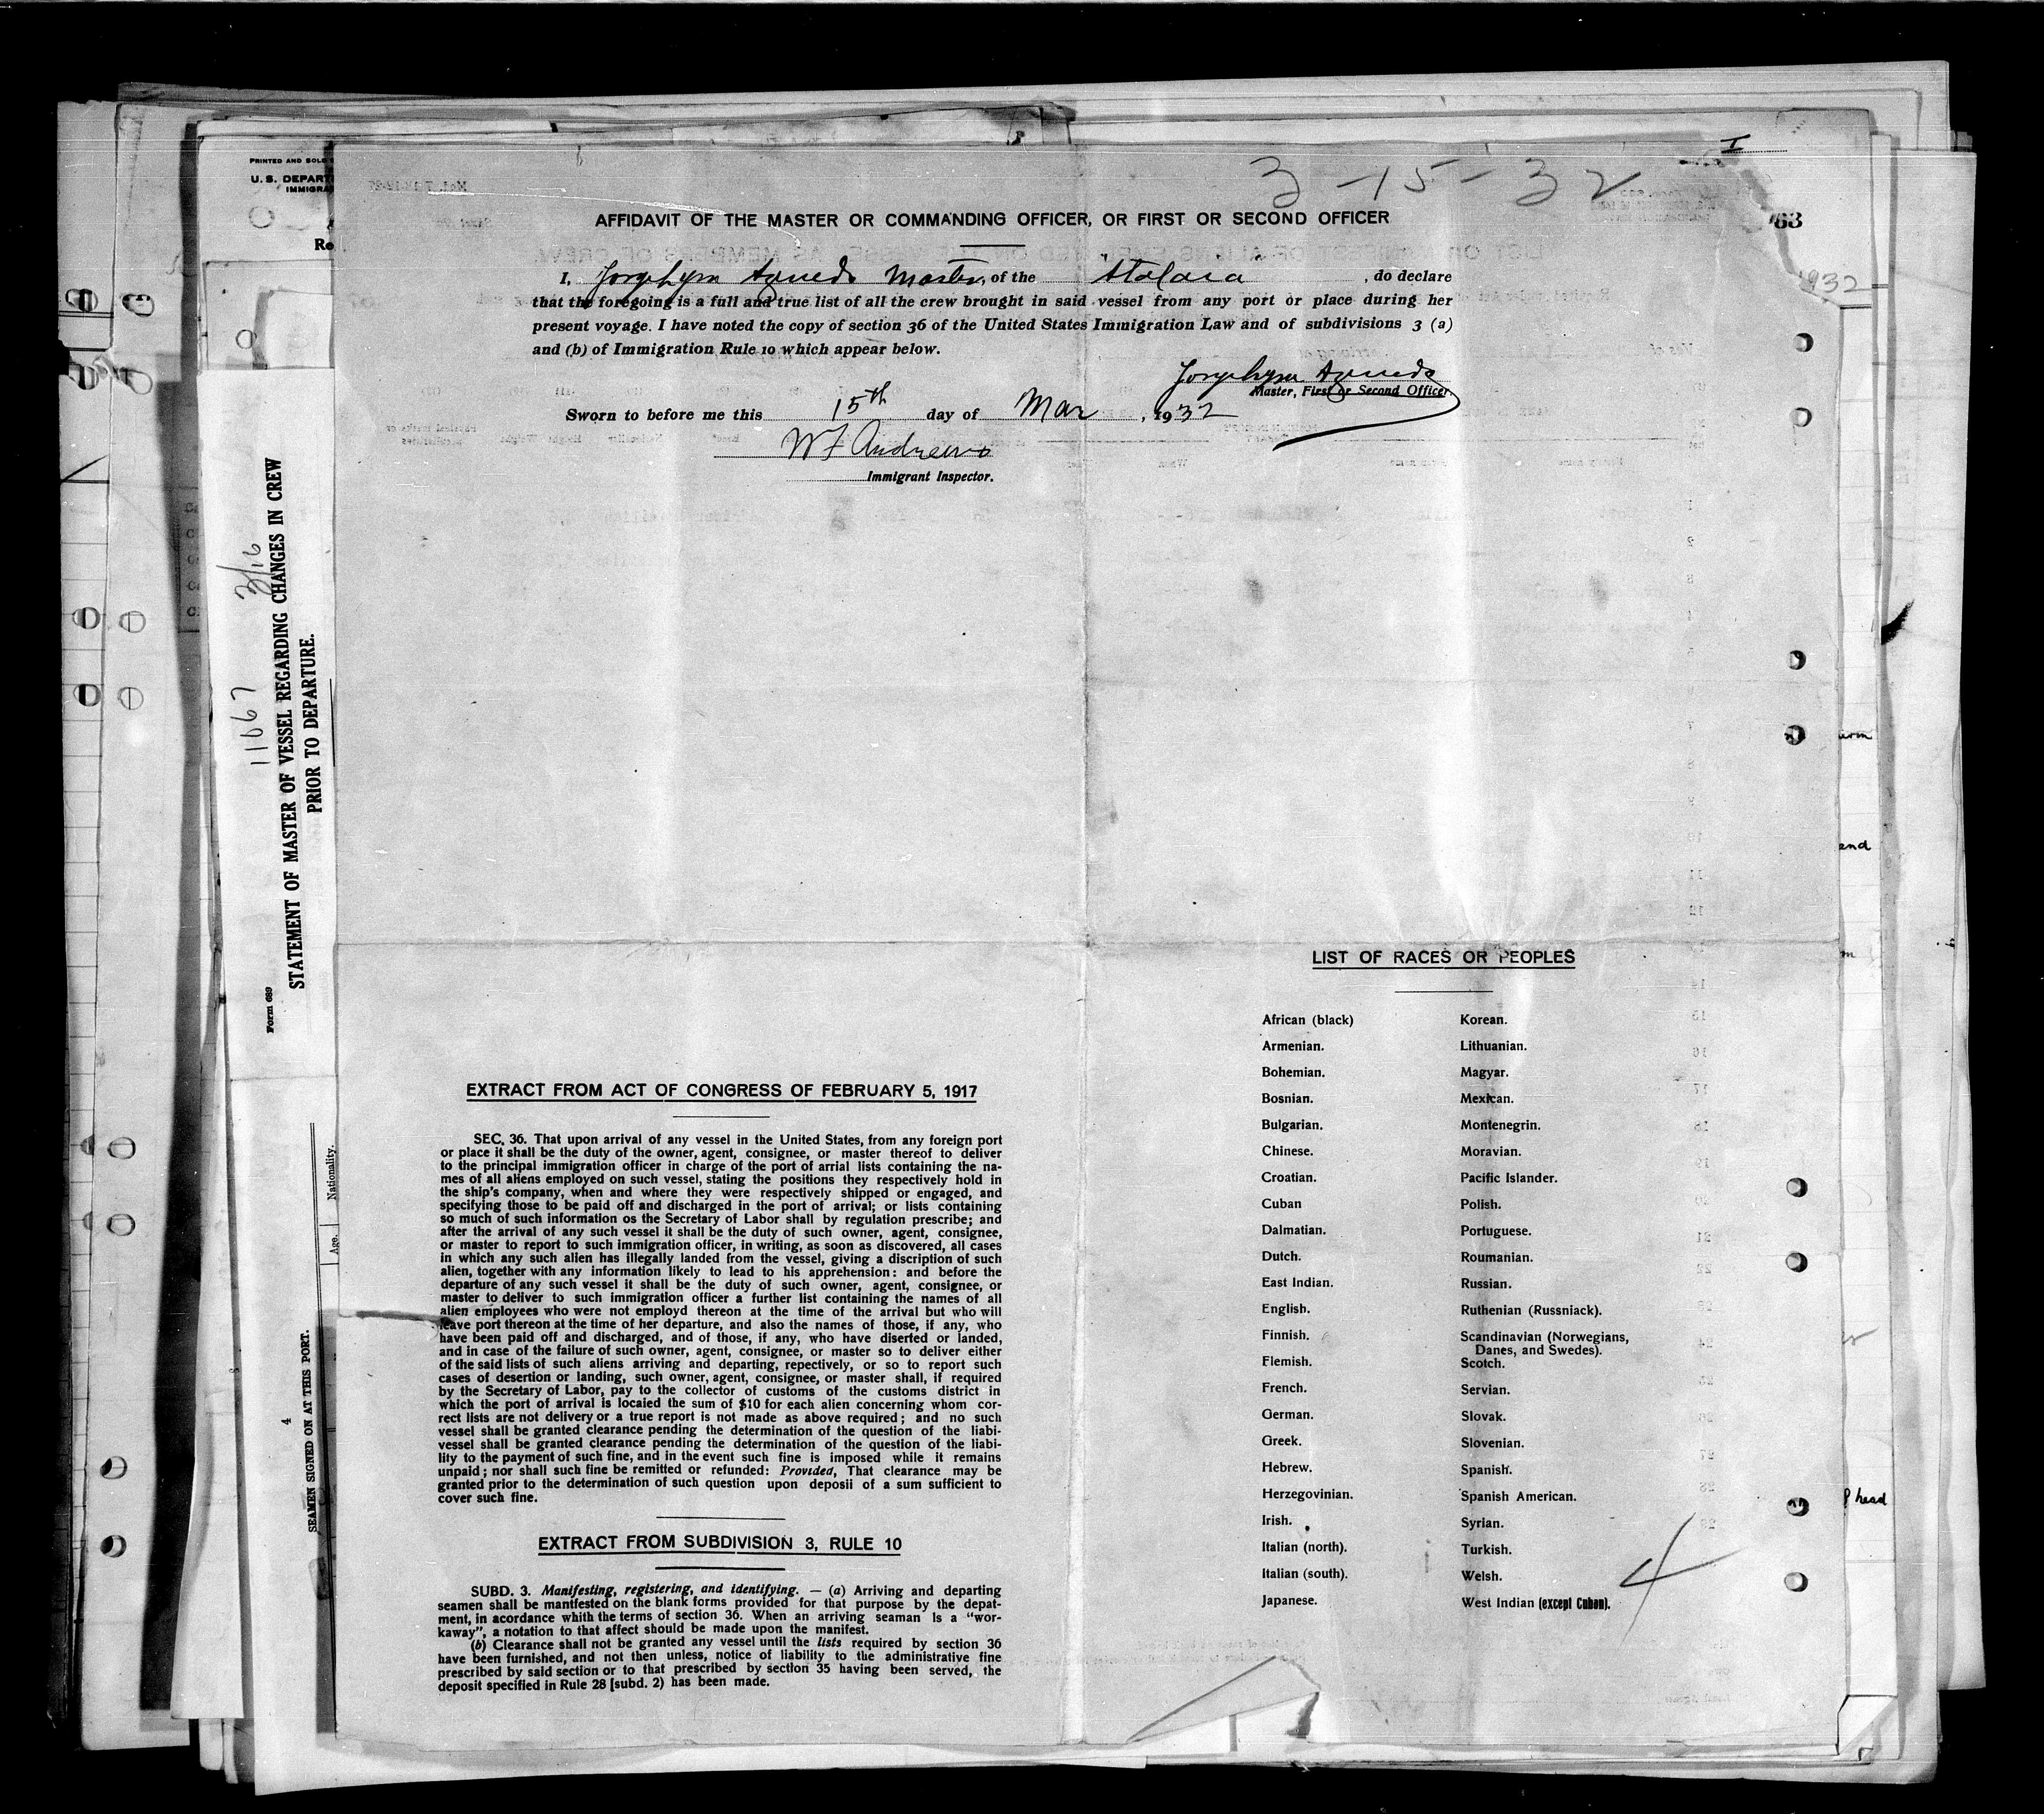 3-15-32
I
PRINTED AND SOLD
U. S. DEPART
IMMIGRA
Re
63
1932
AFFIDAVIT OF THE MASTER OR COMMANDING OFFICER, OR FIRST OR SECOND OFFICER
I, Master, of the Atalaia, do declare
that the foregoing is a full and true list of all the crew brought in said vessel from any port or place during her
present voyage. I have noted the copy of section 36 of the United States Immigration Law and of subdivisions 3 (a)
and (b) of Immigration Rule 10 which appear below.
Master, First or Second Officer
Sworn to before me this 15th day of Mar, 1932
W F Andrews
Immigrant Inspector.
11667 3/16
Form 689
STATEMENT OF MASTER OF VESSEL REGARDING CHANGES IN CREW
PRIOR TO DEPARTURE.
4
SEAMEN SIGNED ON AT THIS PORT.
Age.
Nationality.
EXTRACT FROM ACT OF CONGRESS OF FEBRUARY 5, 1917
SEC. 36. That upon arrival of any vessel in the United States, from any foreign port
or place it shall be the duty of the owner, agent, consignee, or master thereof to deliver
to the principal immigration officer in charge of the port of arrial lists containing the na-
mes of all aliens employed on such vessel, stating the positions they respectively hold in
the ship's company, when and where they were respectively shipped or engaged, and
specifying those to be paid off and discharged in the port of arrival; or lists containing
so much of such information os the Secretary of Labor shall by regulation prescribe; and
after the arrival of any such vessel it shall be the duty of such owner, agent, consignee,
or master to report to such immigration officer, in writing, as soon as discovered, all cases
in which any such alien has illegally landed from the vessel, giving a discription of such
alien, together with any information likely to lead to his apprehension: and before the
departure of any such vessel it shall be the duty of such owner, agent, consignee, or
master to deliver to such immigration officer a further list containing the names of all
alien employees who were not employd thereon at the time of the arrival but who will
leave port thereon at the time of her departure, and also the names of those, if any, who
have been paid off and discharged, and of those, if any, who have diserted or landed,
and in case of the failure of such owner, agent, consignee, or master so to deliver either
of the said lists of such aliens arriving and departing, repectively, or so to report such
cases of desertion or landing, such owner, agent, consignee, or master shall, if required
by the Secretary of Labor, pay to the collector of customs of the customs district in
which the port of arrival is locaied the sum of $10 for each alien concerning whom cor-
rect lists are not delivery or a true report is not made as above required; and no such
vessel shall be granted clearance pending the determination of the question of the liabi-
vessel shall be granted clearance pending the determination of the question of the liabi-
lity to the payment of such fine, and in the event such fine is imposed while it remains
unpaid; nor shall such fine be remitted or refunded: Provided, That clearance may be
granted prior to the determination of such question upon deposii of a sum sufficient to
cover such fine.
EXTRACT FROM SUBDIVISION 3, RULE 10
SUBD. 3. Manifesting, registering, and identifying. — (a) Arriving and departing
seamen shall be mantfested on the blank forms provided for that purpose by the depat-
ment, in acordance whith the terms of section 36. When an arriving seaman is a "wor-
kaway", a notation to that affect should be made upon the manifest.
(b) Clearance shall not be granted any vessel until the lists required by section 36
have been furnished, and not then unless, notice of liability to the administrative fine
prescribed by said section or to that prescribed by section 35 having been served, the
deposit specified in Rule 28 [subd. 2) has been made.
LIST OF RACES OR PEOPLES
African (black)
Armenian.
Bohemian.
Bosnian.
Bulgarian.
Chinese.
Croatian.
Cuban
Dalmatian.
Dutch.
East Indian.
English.
Finnish.
Flemish.
French.
German.
Greek.
Hebrew.
Herzegovinian.
Irish.
Italian (north).
Italian (south).
Japanese.
Korean.
Lithuanian.
Magyar.
Mexican.
Montenegrin.
Moravian.
Pacific Islander.
Polish.
Portuguese.
Roumanian.
Russian.
Ruthenian (Russniack).
Scandinavian (Norwegians,
Danes, and Swedes).
Scotch.
Servian.
Slovak.
Slovenian.
Spanish.
Spanish American.
Syrian.
Turkish.
Welsh.
West Indian (except Cuban).
4
head